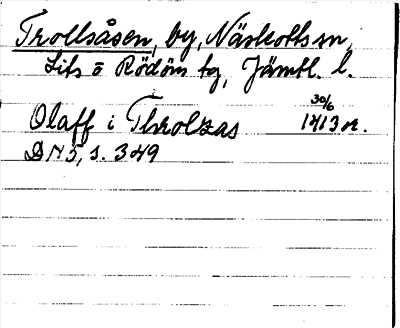 Trollsåsen, by, Näskotts sn,
Lits o Rödöns tg, Jämtl. l.
30/6
Olaff i Throlzas 1413 or.
DN 5, s. 349